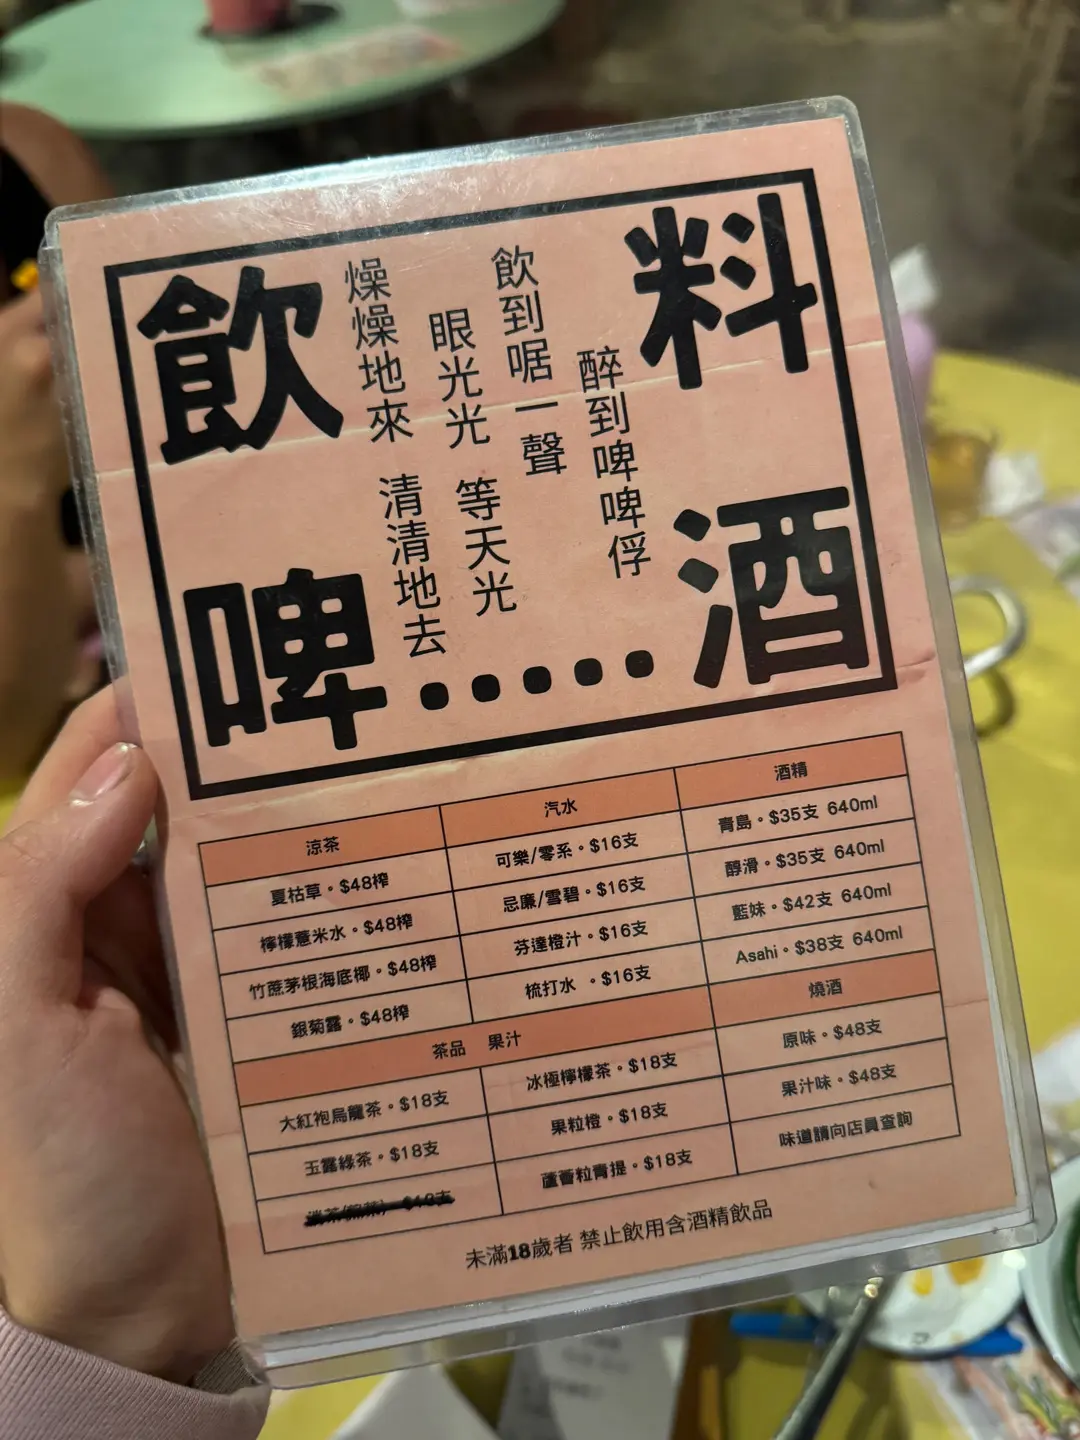 飲料
啤酒
燥燥地來 清清地去
眼光光 等天光
飲到啹一聲
醉到啤啤俘
.....
涼茶
夏枯草·$48榨
檸檬薏米水·$48榨
竹蔗茅根海底椰·$48榨
銀菊露·$48榨
汽水
可樂/零系·$16支
忌廉/雪碧·$16支
芬達橙汁·$16支
梳打水 ·$16支
酒精
青島·$35支 640ml
醇滑·$35支 640ml
藍妹·$42支 640ml
Asahi·$38支 640ml
茶品 果汁
大紅袍烏龍茶·$18支
玉露綠茶·$18支
冰極檸檬茶·$18支
果粒橙·$18支
蘆薈粒青提·$18支
燒酒
原味·$48支
果汁味·$48支
味道請向店員查詢
未滿18歲者 禁止飲用含酒精飲品